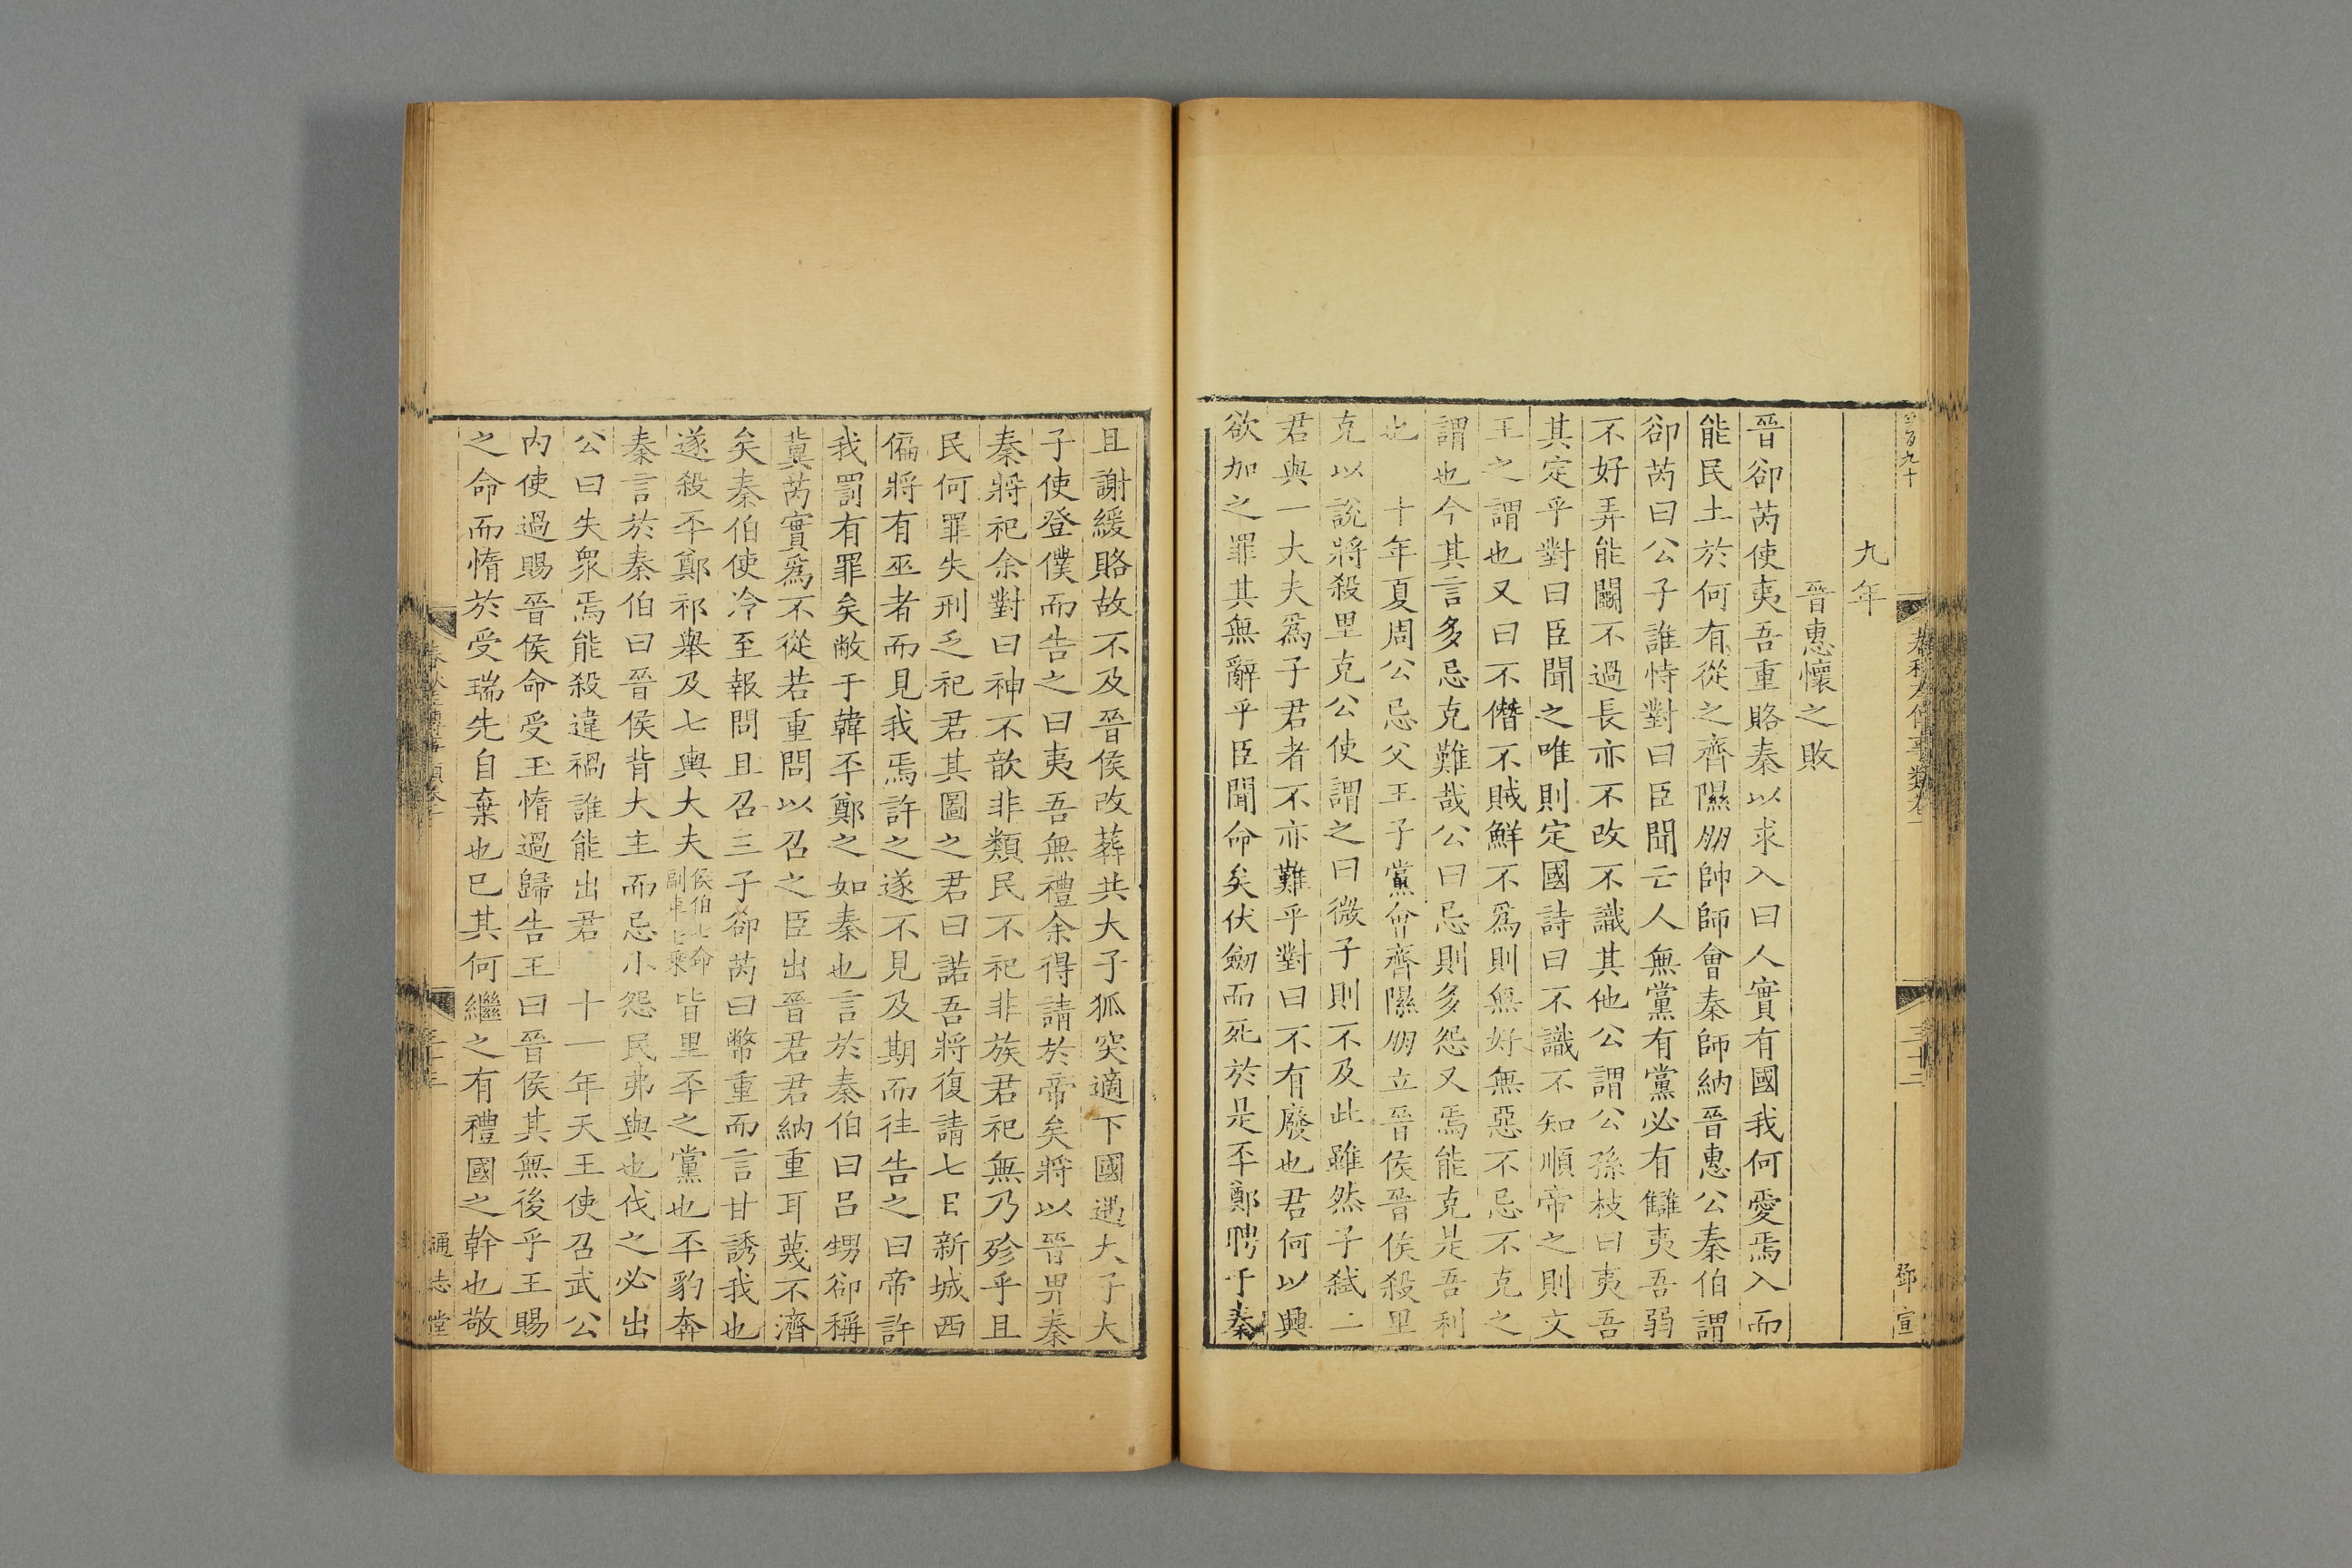 九年
晉惠懷之敗
晉卻芮使夷吾重賂秦以求入曰人實有國我何愛焉入而
能民土於何有從之齊隰朋帥師會秦師納晉惠公秦伯謂
卻芮曰公子誰恃對曰臣聞亡人無黨有黨必有讎夷吾弱
不好弄能鬭不過長亦不改不識其他公謂公孫枝曰夷吾
其定乎對曰臣聞之唯則定國詩曰不識不知順帝之則文
王之謂也又曰不僭不賊鮮不爲則無好無惡不忌不克之
謂也今其言多忌克難哉公曰忌則多怨又焉能克是吾利
也 十年夏周公忌父王子黨會齊隰朋立晉侯晉侯殺里
克以說將殺里克公使謂之曰微子則不及此雖然子弑二
君與一大夫爲子君者不亦難乎對曰不有廢也君何以興
欲加之罪其無辭乎臣聞命矣伏劒而死於是丕鄭聘于秦
鄧宣
且謝緩賂故不及晉侯改葬共大子狐突適下國遇大子大
子使登僕而告之曰夷吾無禮余得請於帝矣將以晉畀秦
秦將祀余對曰神不歆非類民不祀非族君祀無乃殄乎且
民何罪失刑乏祀君其圖之君曰諾吾將復請七日新城西
偏將有巫者而見我焉許之遂不見及期而往告之曰帝許
我罰有罪矣敝于韓丕鄭之如秦也言於秦伯曰呂甥卻稱
冀芮實爲不從若重問以召之臣出晉君君納重耳蔑不濟
矣秦伯使冷至報問且召三子卻芮曰幣重而言甘誘我也
遂殺丕鄭祁舉及七輿大夫侯伯七命副車七乘皆里丕之黨也丕豹奔
秦言於秦伯曰晉侯背大主而忌小怨民弗與也伐之必出
公曰失衆焉能殺違禍誰能出君 十一年天王使召武公
內使過賜晉侯命受玉惰過歸告王曰晉侯其無後乎王賜
之命而惰於受瑞先自棄也巳其何繼之有禮國之幹也敬
通志堂